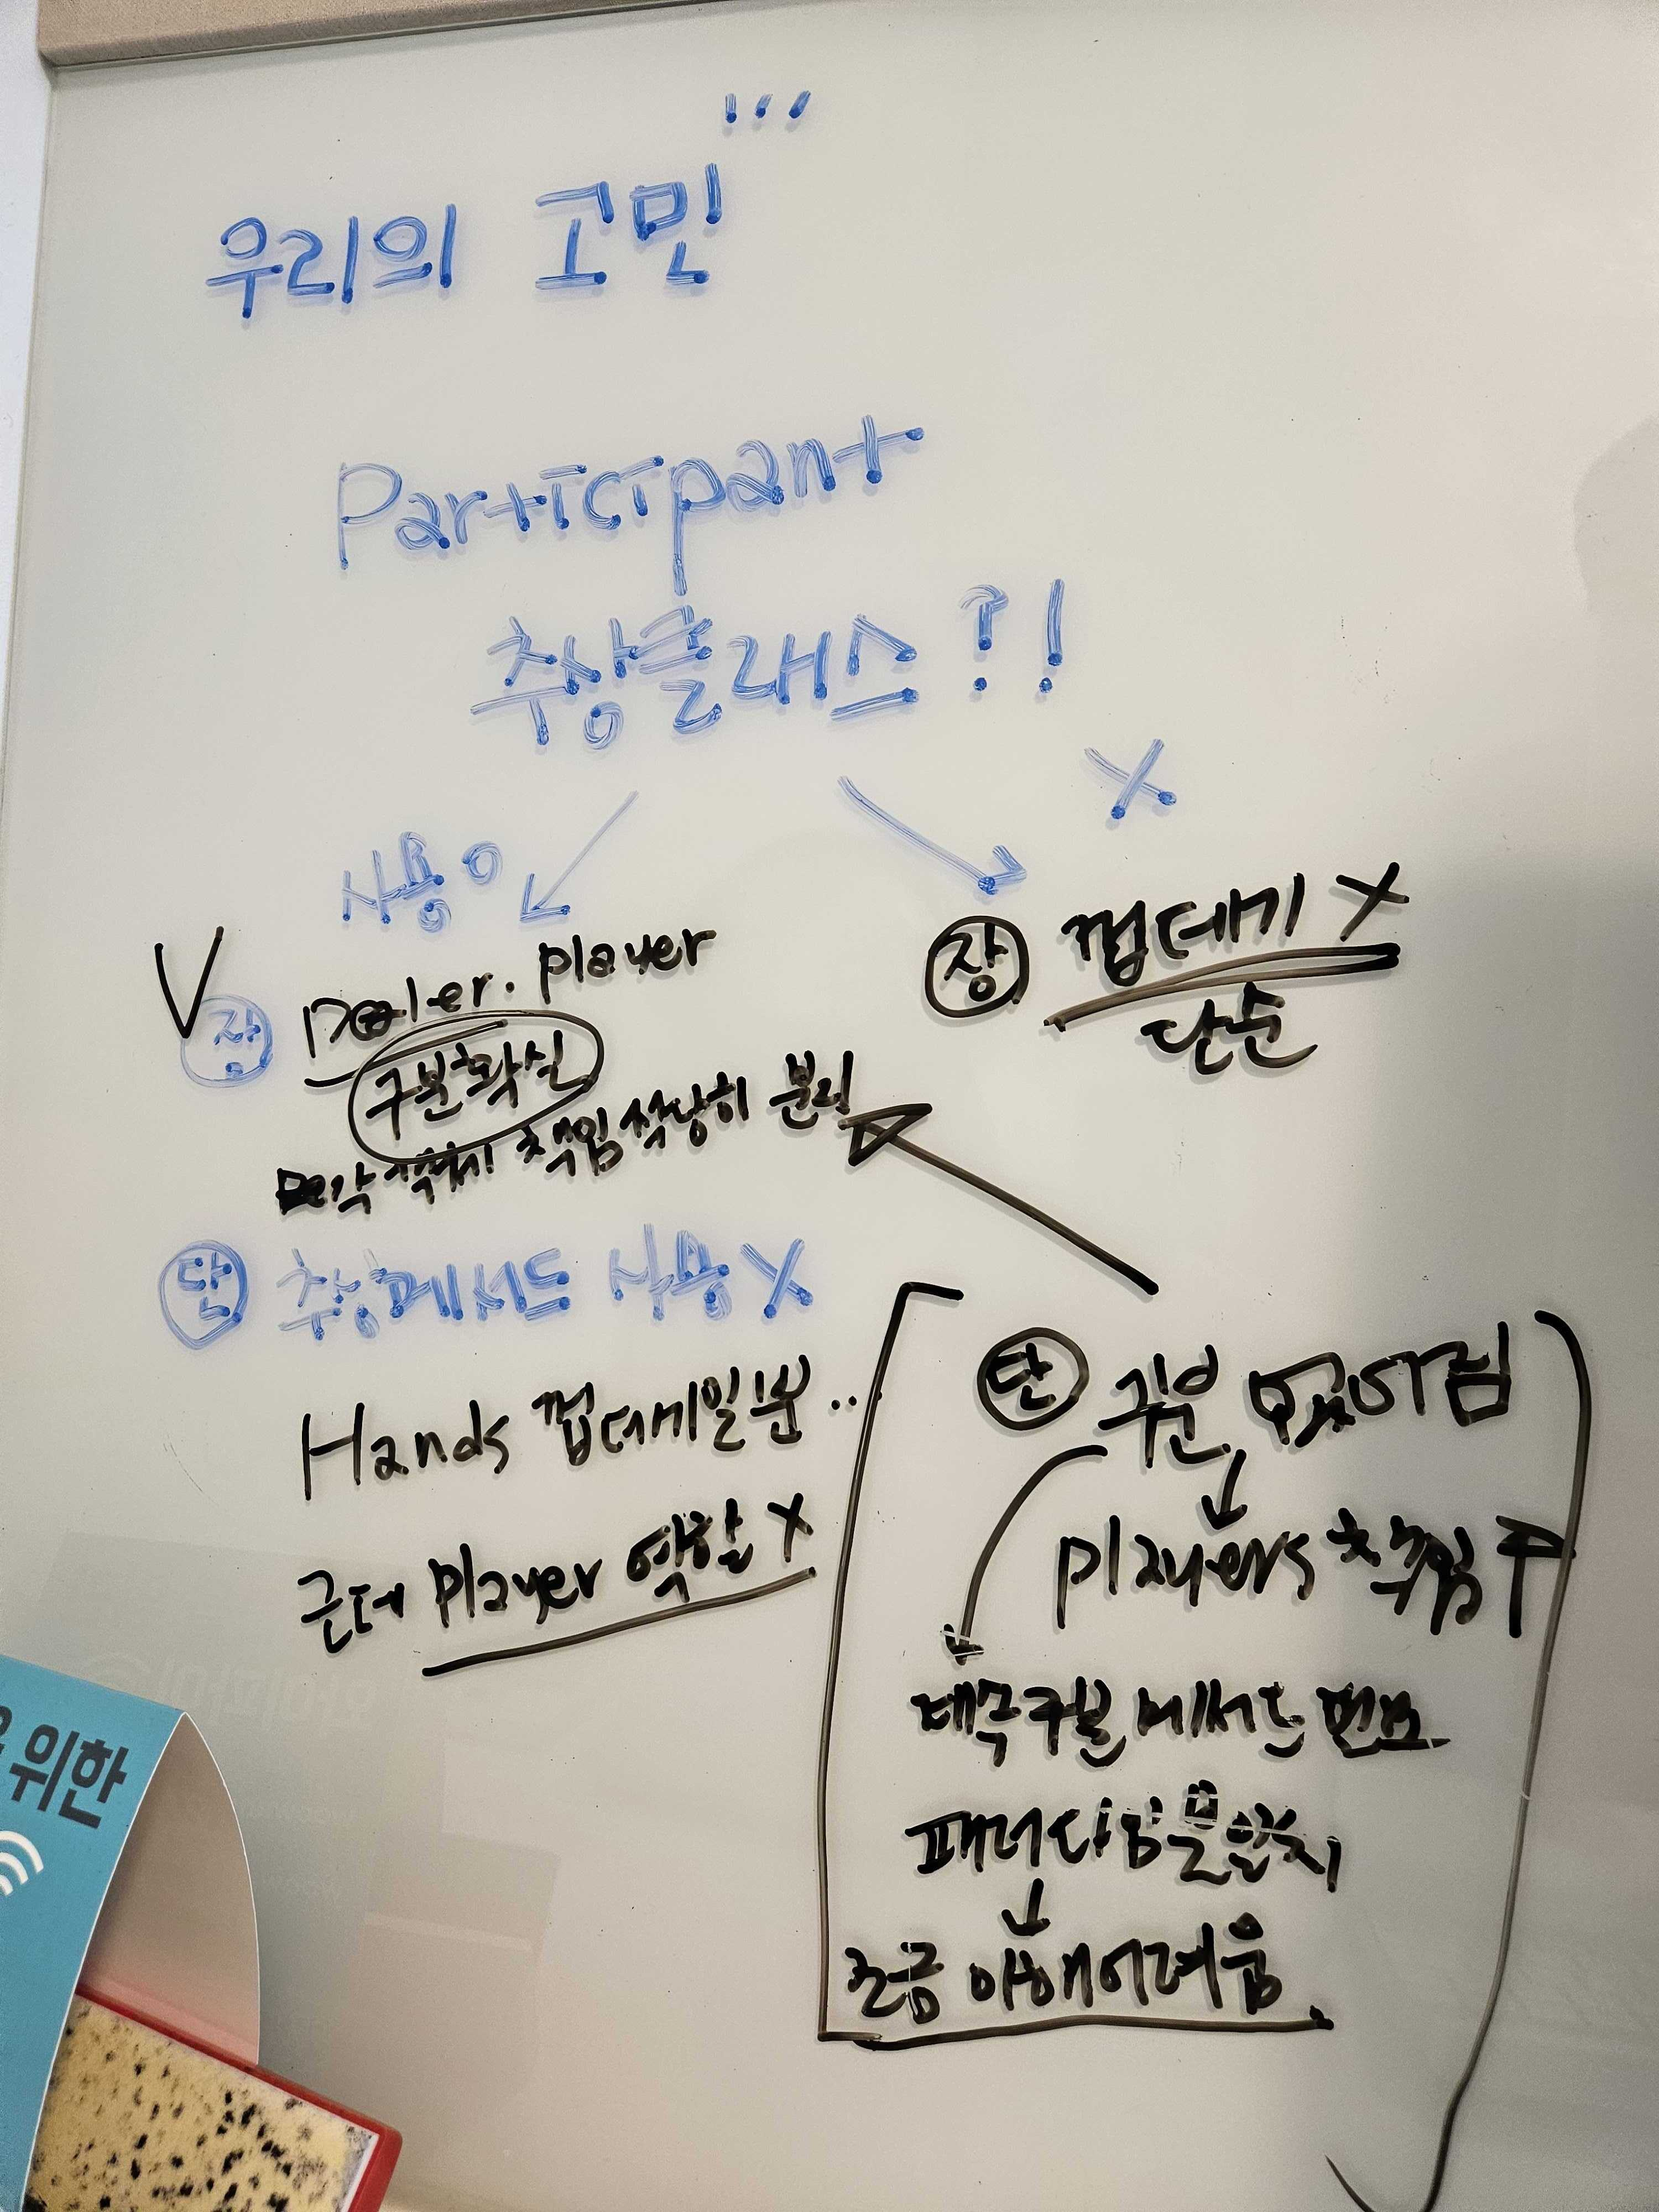 ...
우리의 고민
Participant
추상클래스?!
사용 O
X
V
장 Dealer. player
구분확실
객체 책임 적당히 분리
단 추상메서드 사용 X
Hands 껍데기일뿐..
근데 player 역할 X
장 껍데기 X
단순
단 구분
players 책임
메서드 필요
패러다임 불일치
조금 이해어려움.
위한